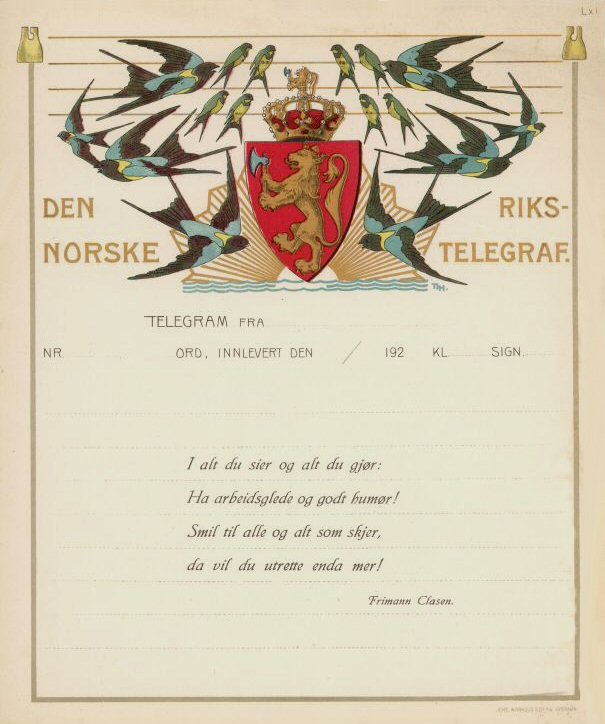 Lx1
DEN NORSKE
RIKS-
TELEGRAF.
TH.
TELEGRAM FRA
NR. ORD, INNLEVERT DEN / 192 KL. SIGN.
I alt du sier og alt du gjør:
Ha arbeidsglede og godt humør!
Smil til alle og alt som skjer,
da vil du utrette enda mer!
Frimann Clasen.